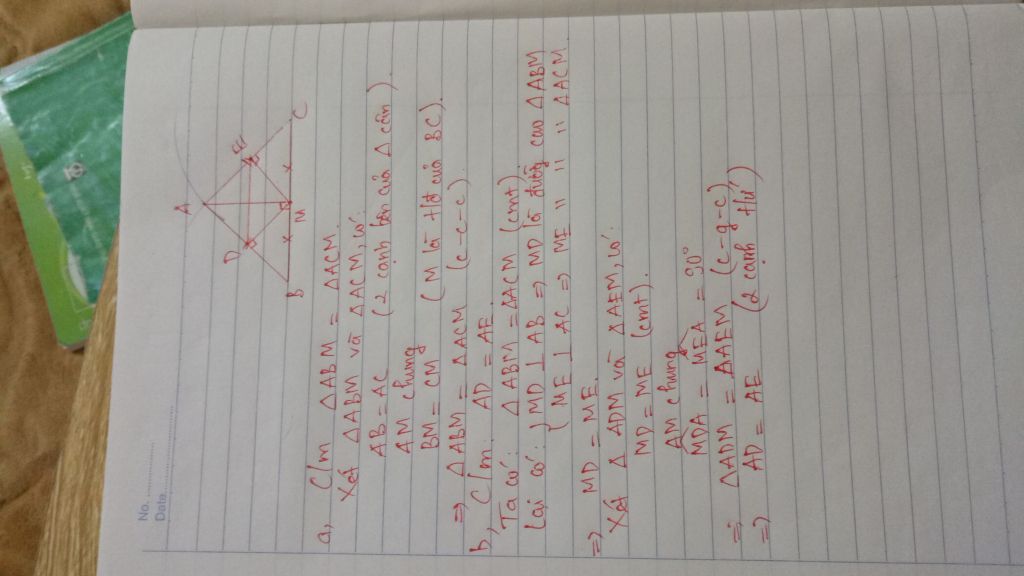 No. ..............
Date. ..............
A
D
E
B
M
C
a, C/m ΔABM = ΔACM.
Xét ΔABM và ΔACM, có:
AB = AC (2 cạnh bên của Δ cân).
AM chung
BM = CM (M là t/đ của BC).
=> ΔABM = ΔACM (c-c-c)
b, C/m: AD = AE.
Ta có: ΔABM = ΔACM (cmt)
Lại có: { MD ⊥ AB => MD là đường cao ΔABM
{ ME ⊥ AC => ME " " " ΔACM
=> MD = ME.
Xét Δ ADM và ΔAEM, có:
MD = ME (cmt).
AM chung
MDA = MEA = 90°
=> ΔADM = ΔAEM (c-g-c)
=> AD = AE (2 cạnh t/ứ)